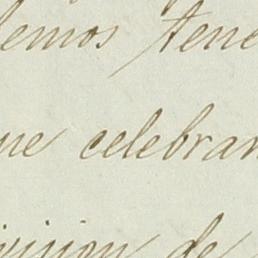 emos tene
ue celebran
ision de